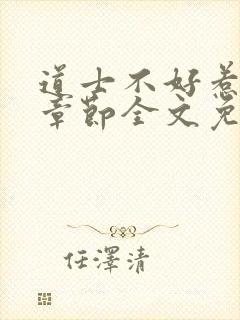 道士不好惹
章節全文免
任澤清